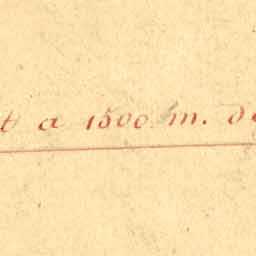 a 1500 m.